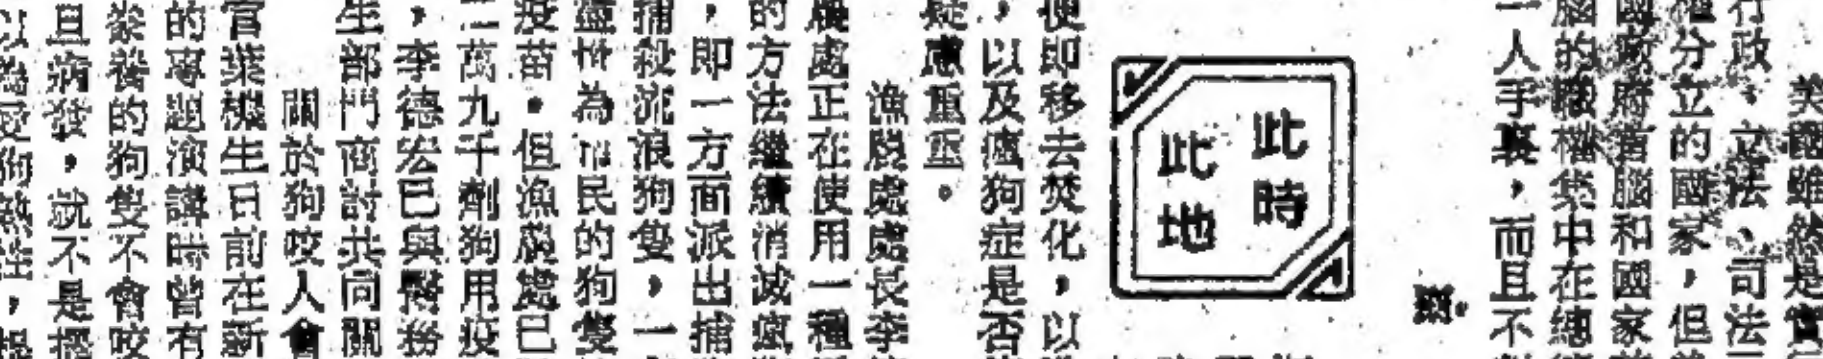 美國雖然是實
行政、立法、司法
權分立的國家，但
國政府首腦和國家
腦的職權集中在總
一人手裏，而且不
此時
此地
便即移去焚化，以
，以及瘋狗症是否
疑慮重重。
漁農處處長李
農處正在使用一種
的方法繼續消滅瘋
，即一方面派出捕
捕殺流浪狗隻，一
為市民的狗隻
疫苗。但漁農處已
二萬九千劑狗用疫
，李德宏已與醫務
生部門商討共同關
關於狗咬人會
官葉機生日前在新
的專題演講時曾有
豢養的狗隻不會咬
且病發，就不是
以為愛狗熱